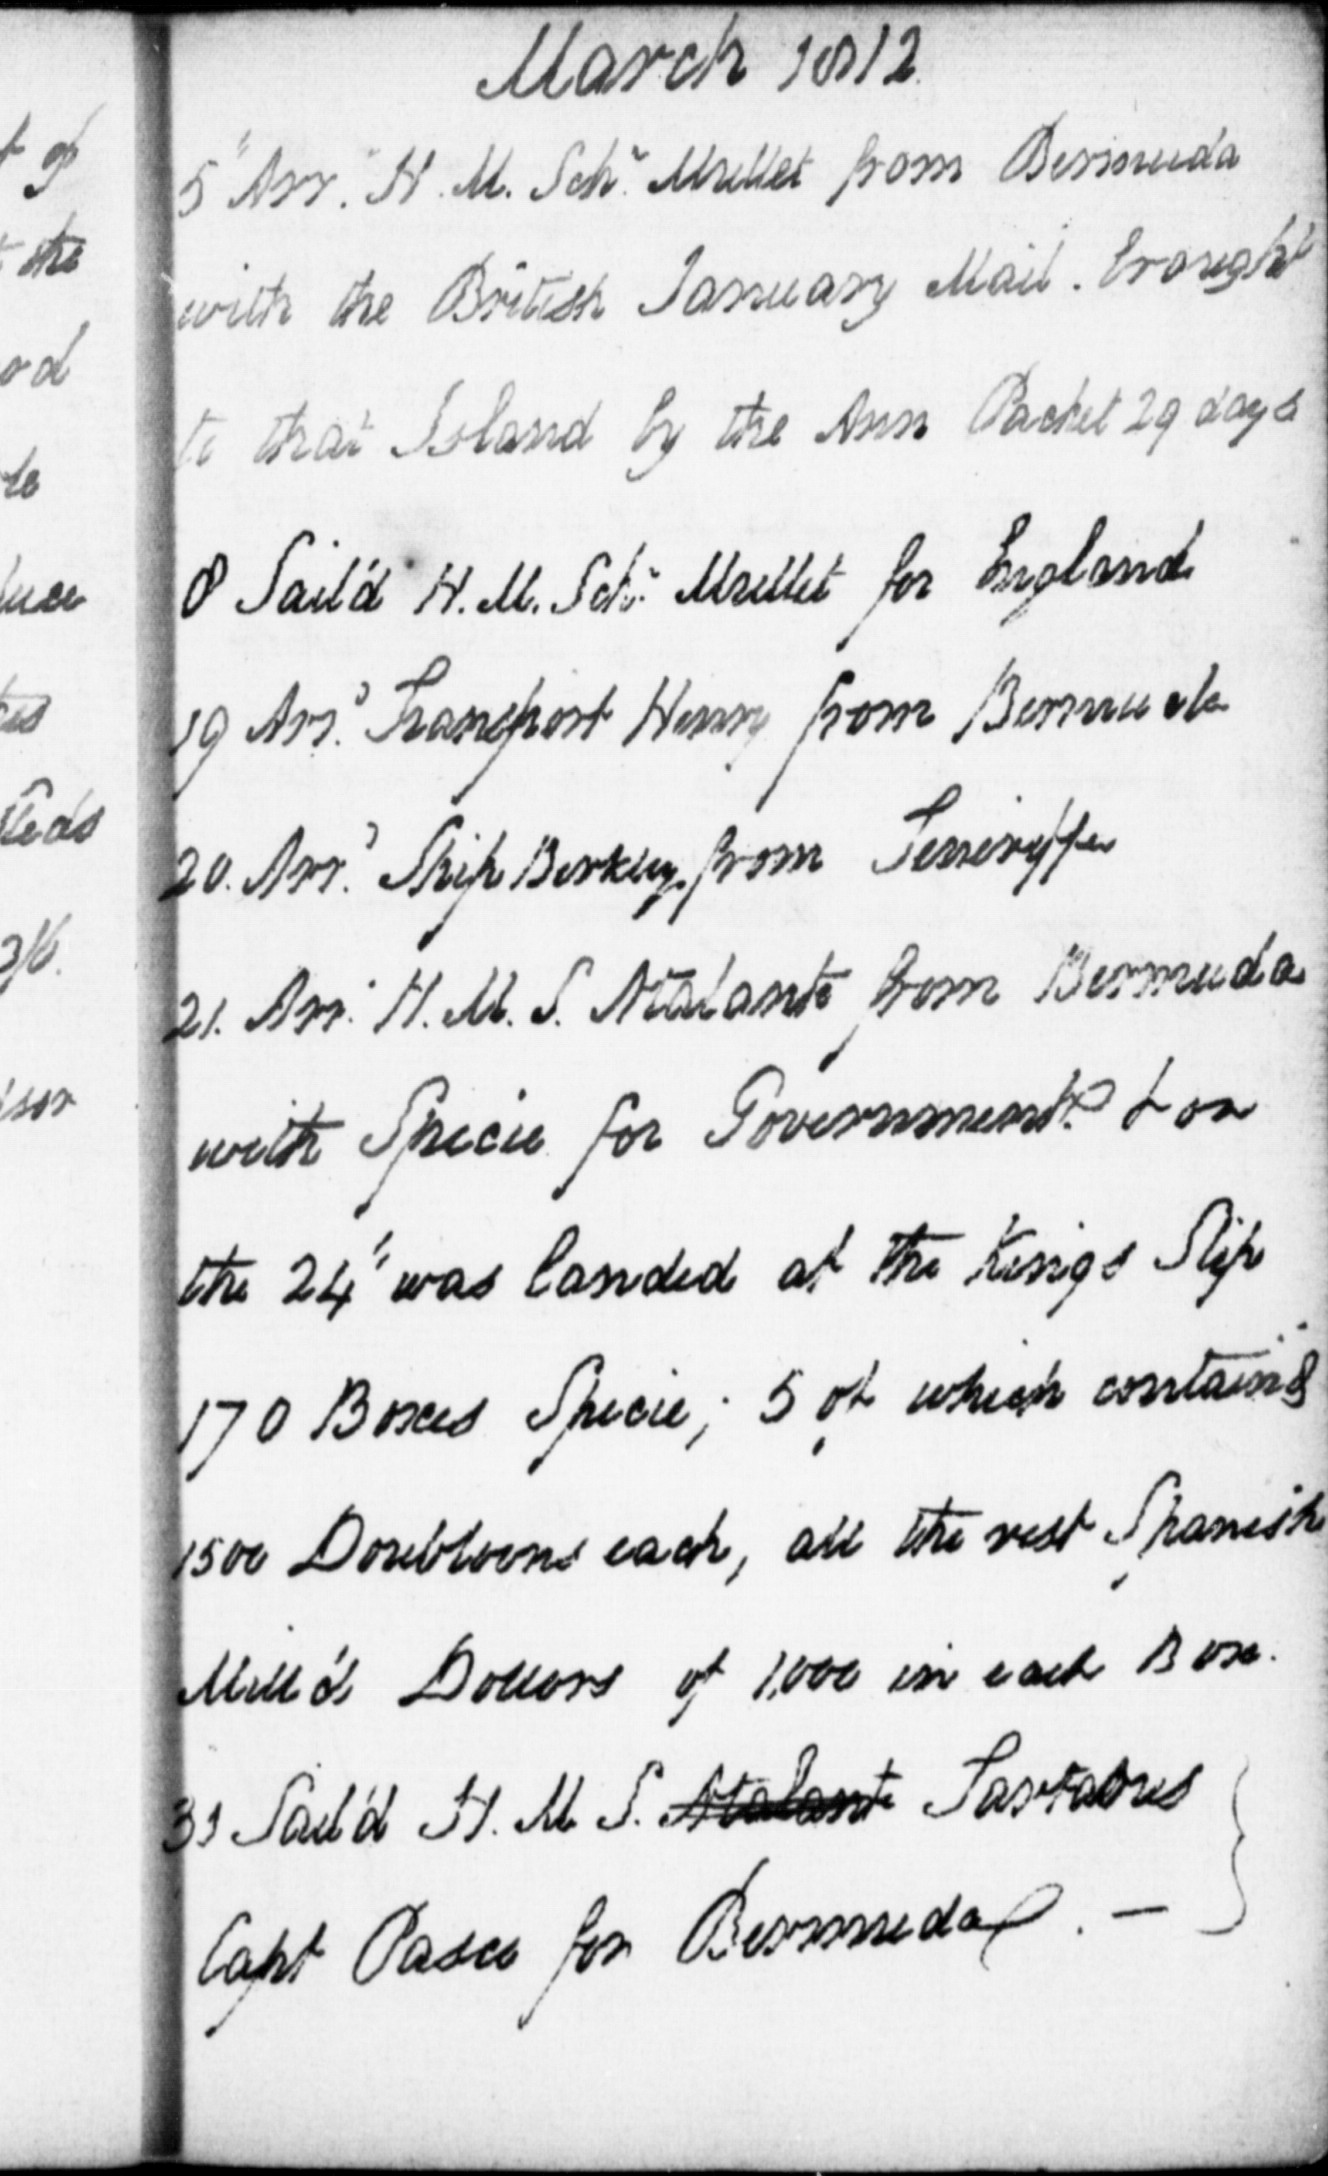 March 1812
5" Arr. H. M. Schr. Mullet from Bermuda
with the British January Mail. brought
to that Island by the Ann Packet 29 days
8 Sail'd H. M. Schr. Mullet for England
19 Arr.d Transport Henry from Bermuda
20. Arr.d Ship Berkley from Teneriffe
21. Arr. H. M. S. Atalante from Bermuda
with Specie for Government. & on
the 24" was landed at the Kings Slip
170 Boxes Specie; 5 of which contain'd
1500 Doubloons each, all the rest Spanish
Mill'd Dollars of 1,000 in each Box.
31 Sail'd H. M. S. Atalante Tartarus
Capt Pasco for Bermuda. —
of
the
od